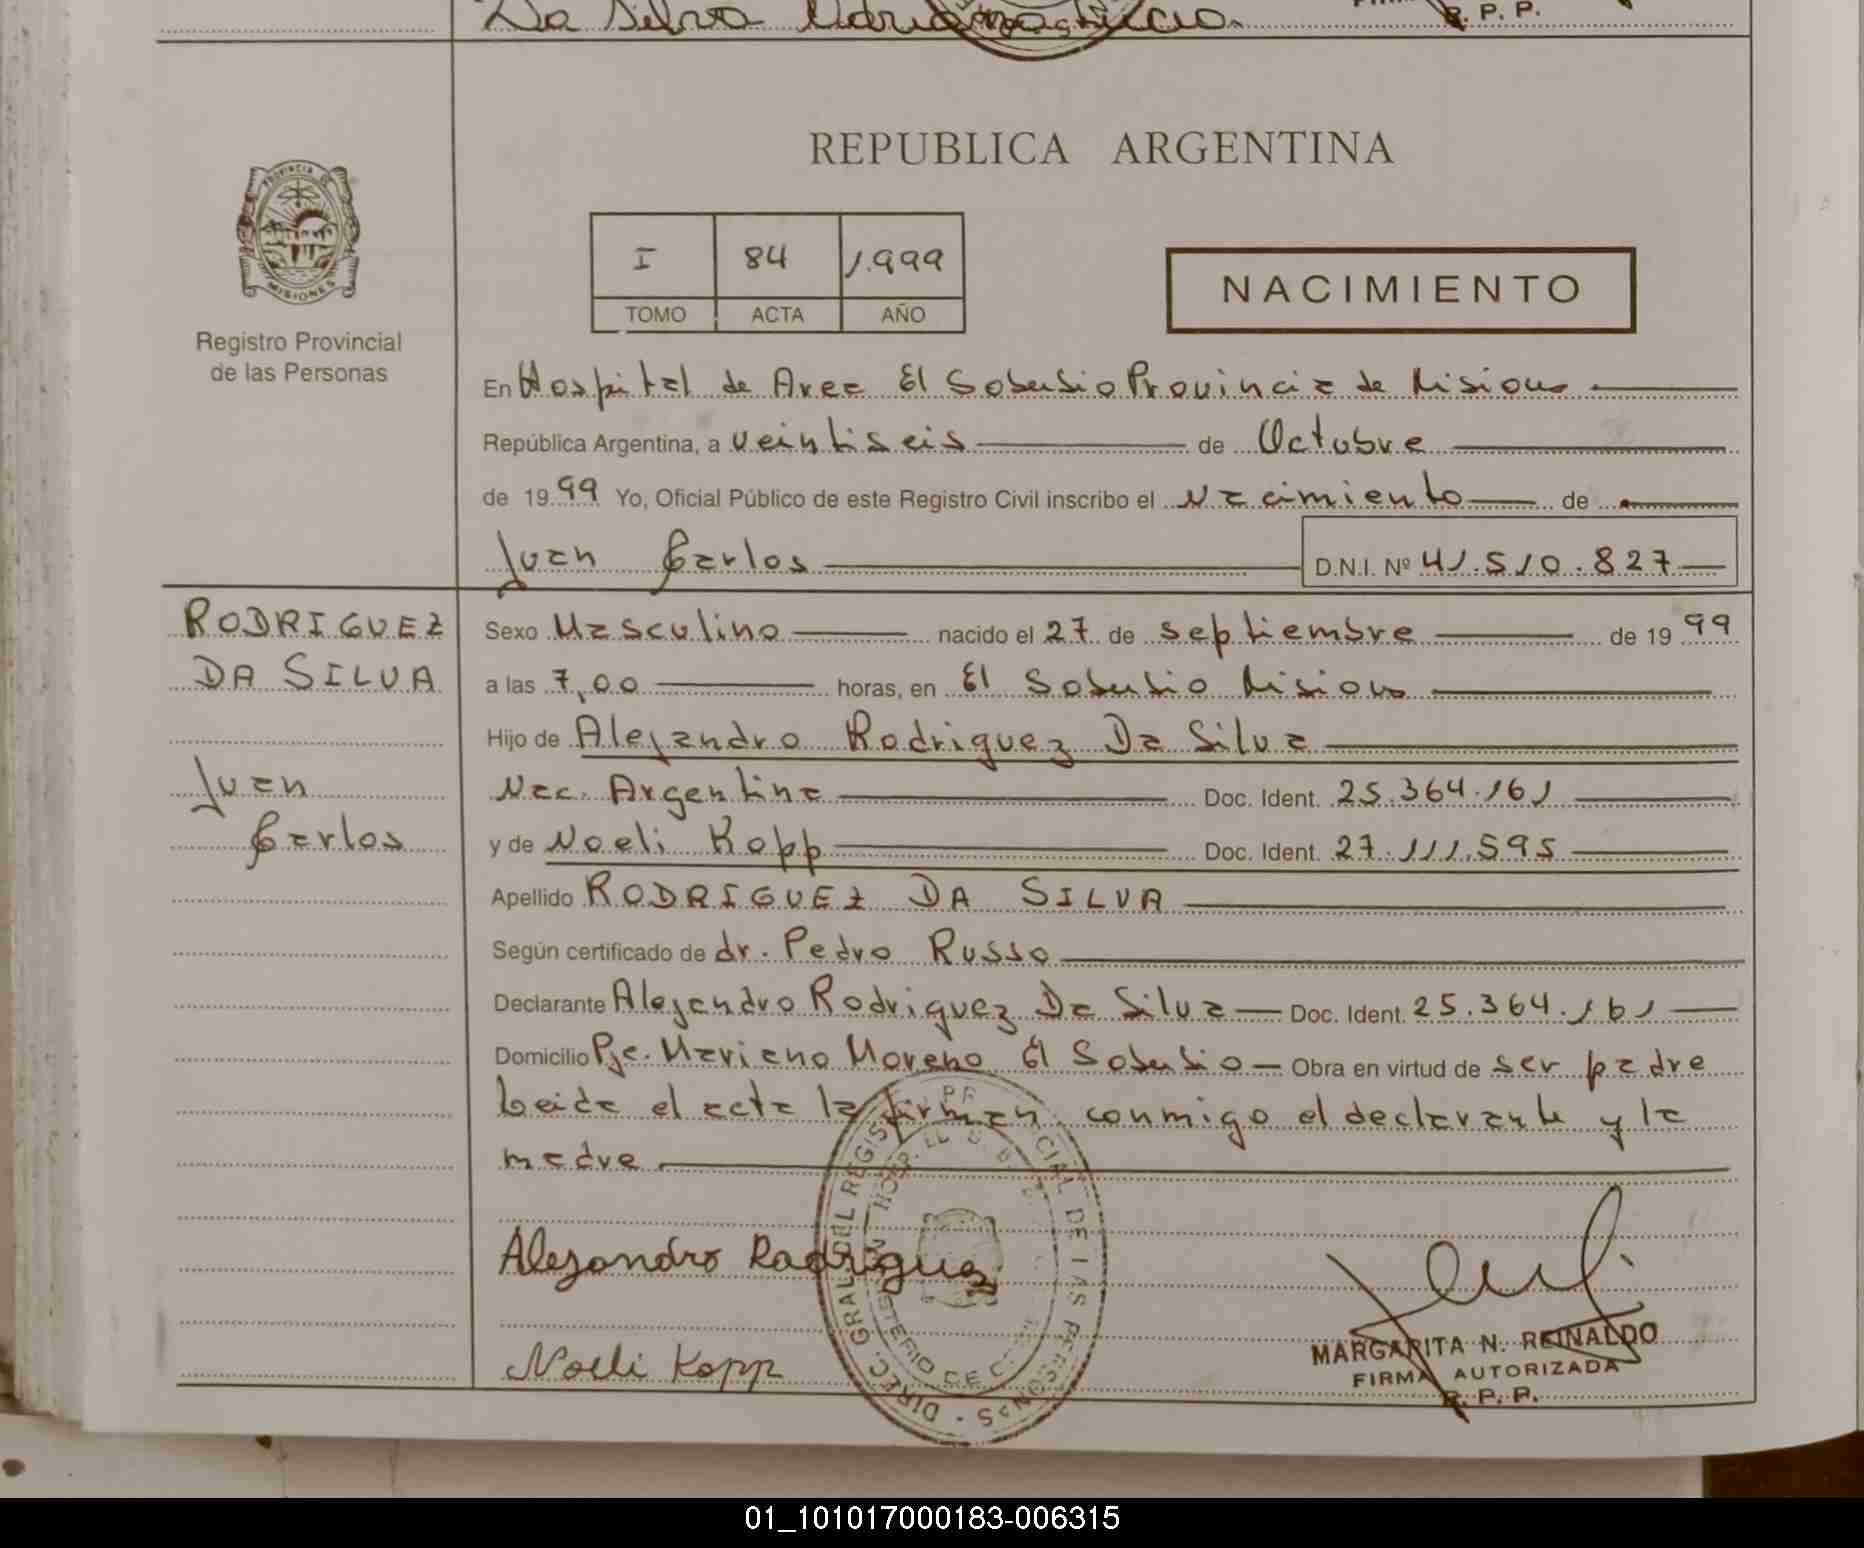 Da Silva Adriana Lucia
R. P. P.
PROVINCIA DE
MISIONES
Registro Provincial
de las Personas
REPUBLICA ARGENTINA
I 84 1.999
TOMO ACTA AÑO
NACIMIENTO
En Hospital de Area El Soberbio Provincia de Misiones
República Argentina, a veintiseis de Octubre
de 1999 Yo, Oficial Público de este Registro Civil inscribo el Nacimiento de
Juan Carlos D.N.I. Nº 41.510.827
RODRIGUEZ
DA SILVA
Juan
Carlos
Sexo Masculino nacido el 27 de septiembre de 1999
a las 7,00 horas, en El Soberbio Misiones
Hijo de Alejandro Rodriguez Da Silva
Nac. Argentina Doc. Ident. 25.364.161
y de Noeli Kopp Doc. Ident. 27.111.595
Apellido RODRIGUEZ DA SILVA
Según certificado de dr. Pedro Russo
Declarante Alejandro Rodriguez Da Silva Doc. Ident. 25.364.161
Domicilio Pje. Mariano Moreno El Soberbio Obra en virtud de ser padre
Leida el acta la firman conmigo el declarante y la
madre
Alejandro Rodriguez
Noeli Kopp
DIREC. GRAL. DEL REGIS PR CIAL DE LAS PERSONAS
MARGARITA N. REINALDO
FIRMA AUTORIZADA
R. P. P.
01_101017000183-006315